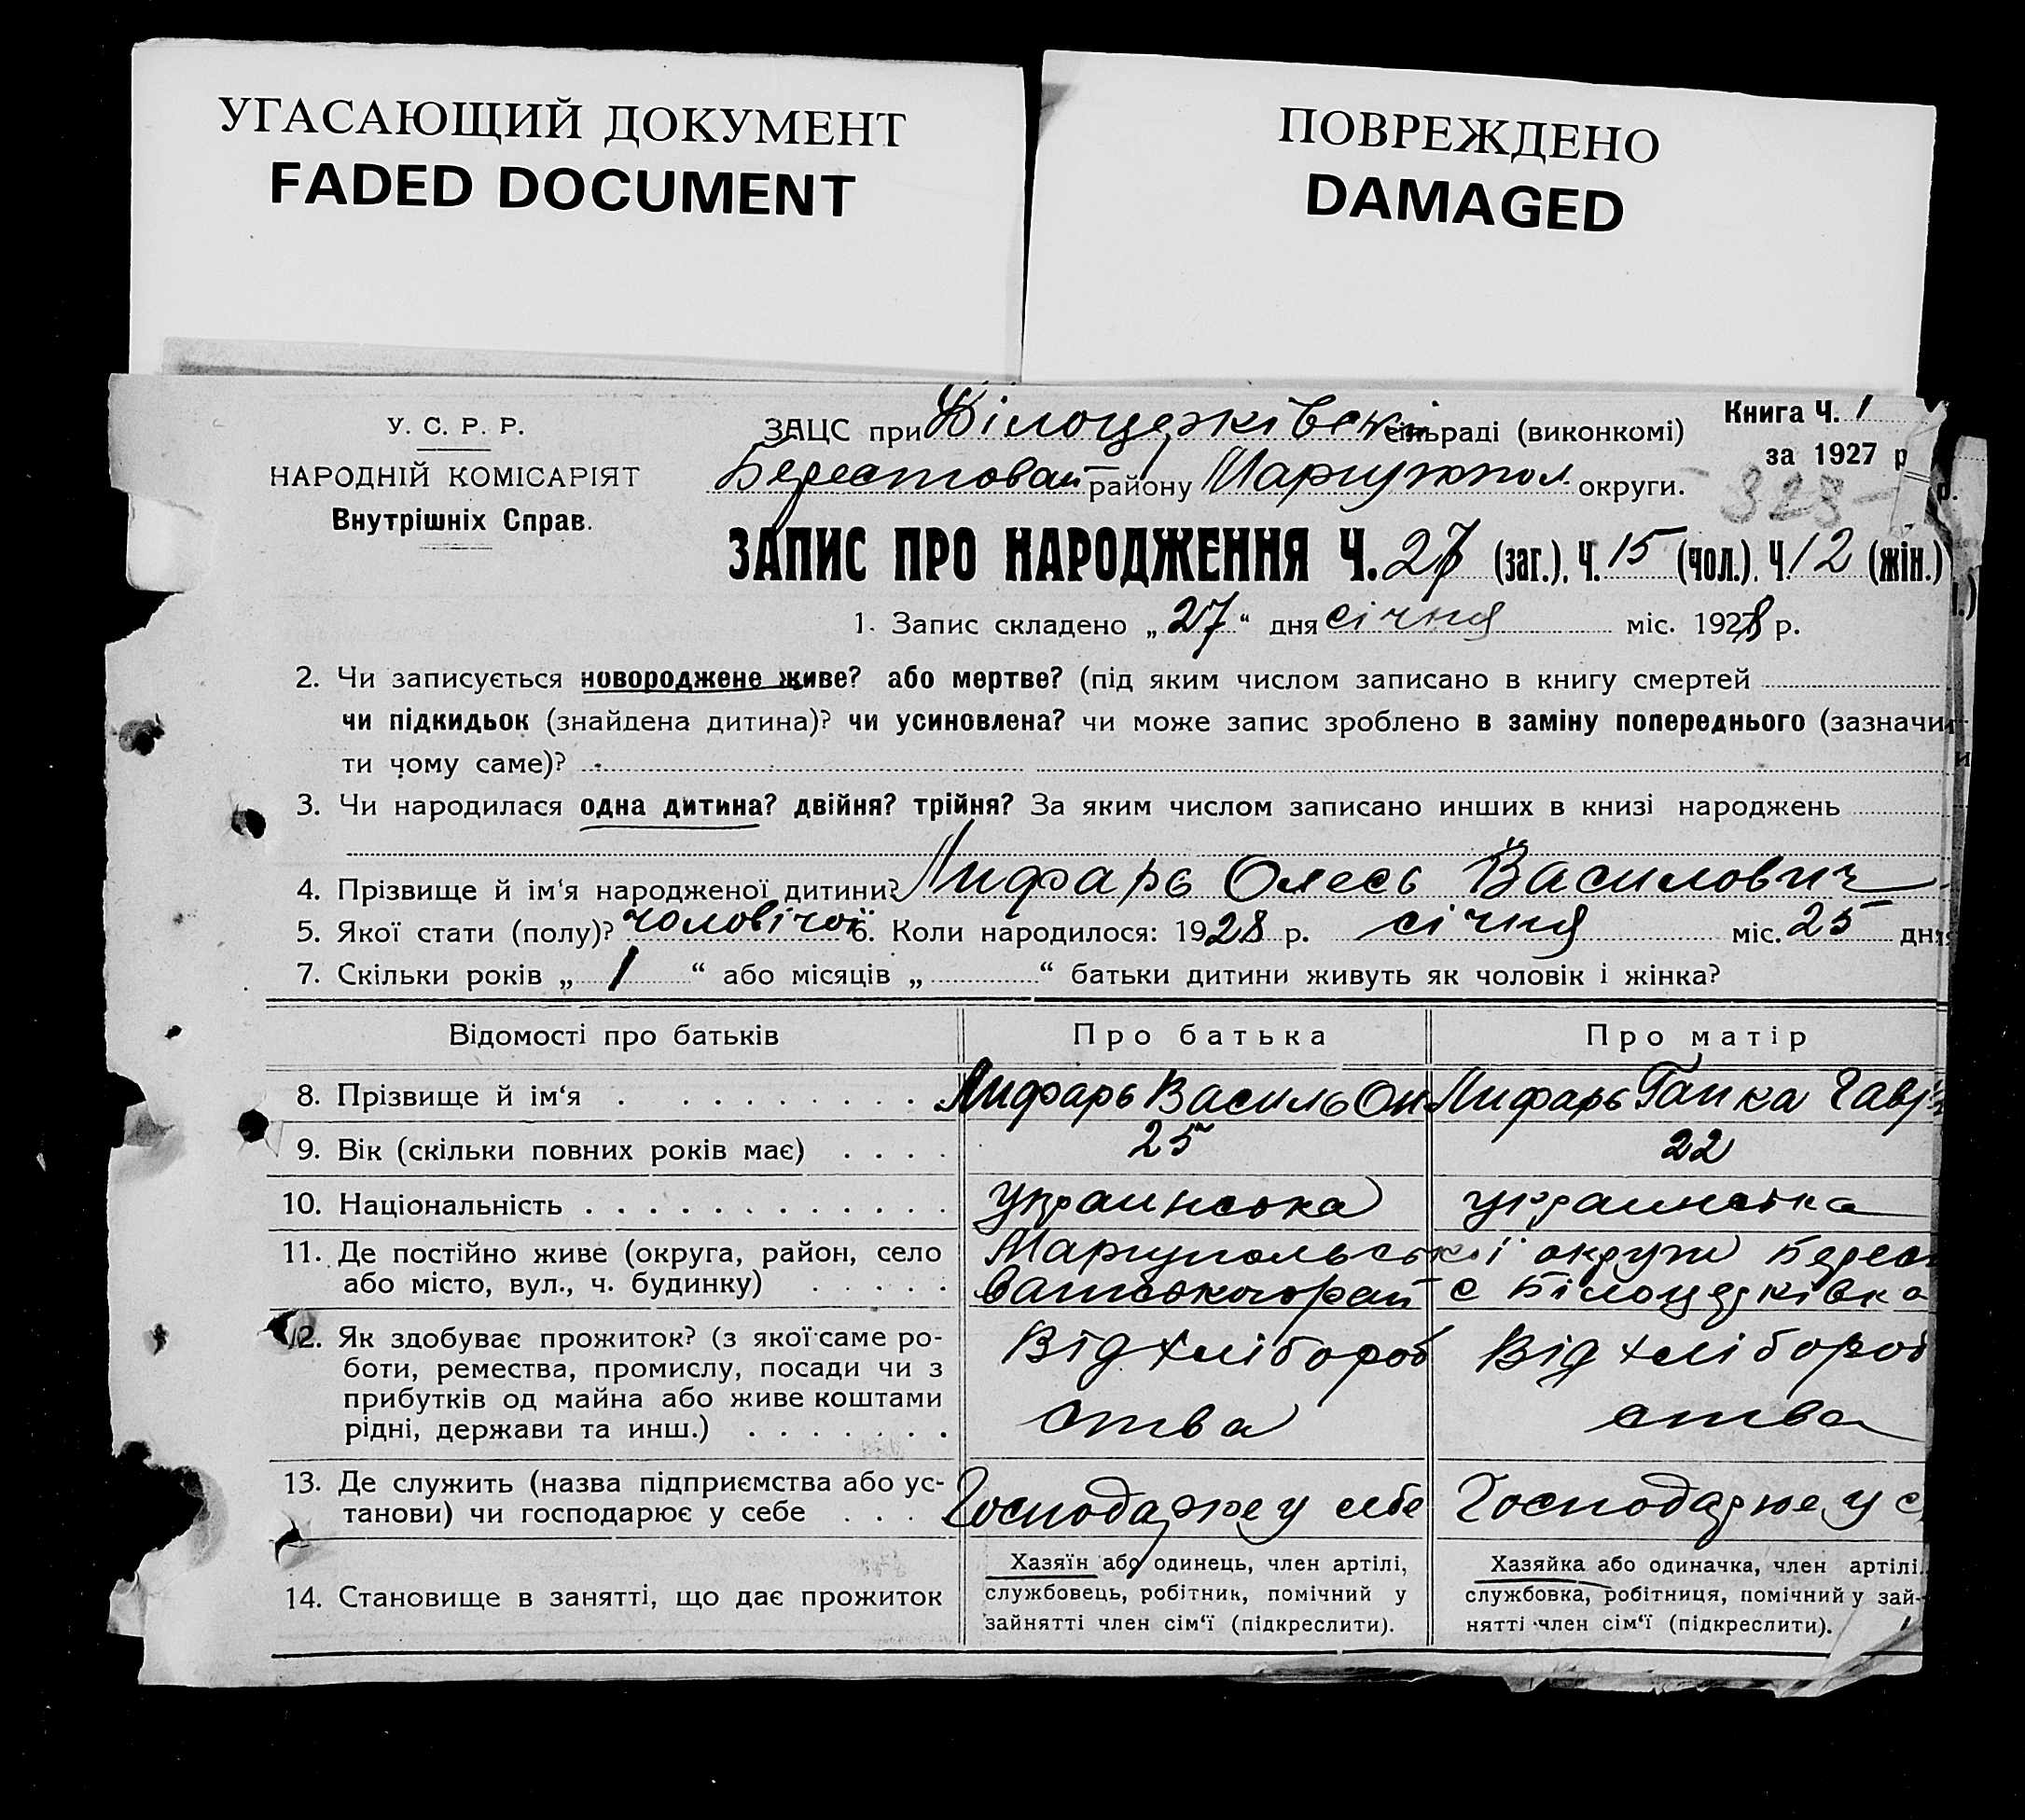 УГАСАЮЩИЙ ДОКУМЕНТ
FADED DOCUMENT
ПОВРЕЖДЕНО
DAMAGED
У. С. Р. Р.
НАРОДНІЙ КОМІСАРІЯТ
Внутрішніх Справ.
ЗАЦС при Білоцерківській сільраді (виконкомі)
Книга Ч. 1
за 1927 р
Берестован району Маріупол округи.
328
ЗАПИС ПРО НАРОДЖЕННЯ Ч. 27 (заг.), Ч. 15 (чол.), Ч. 12 (жін.)
1. Запис складено „27“ дня січня міс. 1928 р.
2. Чи записується новороджене живе? або мертве? (під яким числом записано в книгу смертей
чи підкидьок (знайдена дитина)? чи усиновлена? чи може запис зроблено в заміну попереднього (зазначи-
ти чому саме)?
3. Чи народилася одна дитина? двійня? трійня? За яким числом записано инших в книзі народжень
4. Прізвище й ім‘я народженої дитини? Лифарь Олесь Василович
5. Якої стати (полу)? чоловічої 6. Коли народилося: 1928 р. січня міс. 25 дня
7. Скільки років „1“ або місяців „ “ батьки дитини живуть як чоловік і жінка?
Відомості про батьків Про батька Про матір
8. Прізвище й ім‘я Лифарь Василь Он Лифарь Гапка Гавр
9. Вік (скільки повних років має) 25 22
10. Національність украинська украинська
11. Де постійно живе (округа, район, село Маріупольської округи Берест
або місто, вул., ч. будинку) ватського рай с Білоцерківка
12. Як здобуває прожиток? (з якої саме ро-
боти, ремества, промислу, посади чи з
прибутків од майна або живе коштами
рідні, держави та инш.)
Від хлібороб
ства
Від хлібороб
ства
13. Де служить (назва підприємства або ус-
танови) чи господарює у себе
Господарює у себе Господарює у с
14. Становище в занятті, що дає прожиток
Хазяїн або одинець, член артілі,
службовець, робітник, помічний у
зайнятті член сім‘ї (підкреслити).
Хазяйка або одиначка, член артілі,
службовка, робітниця, помічний у зай-
нятті член сім‘ї (підкреслити).